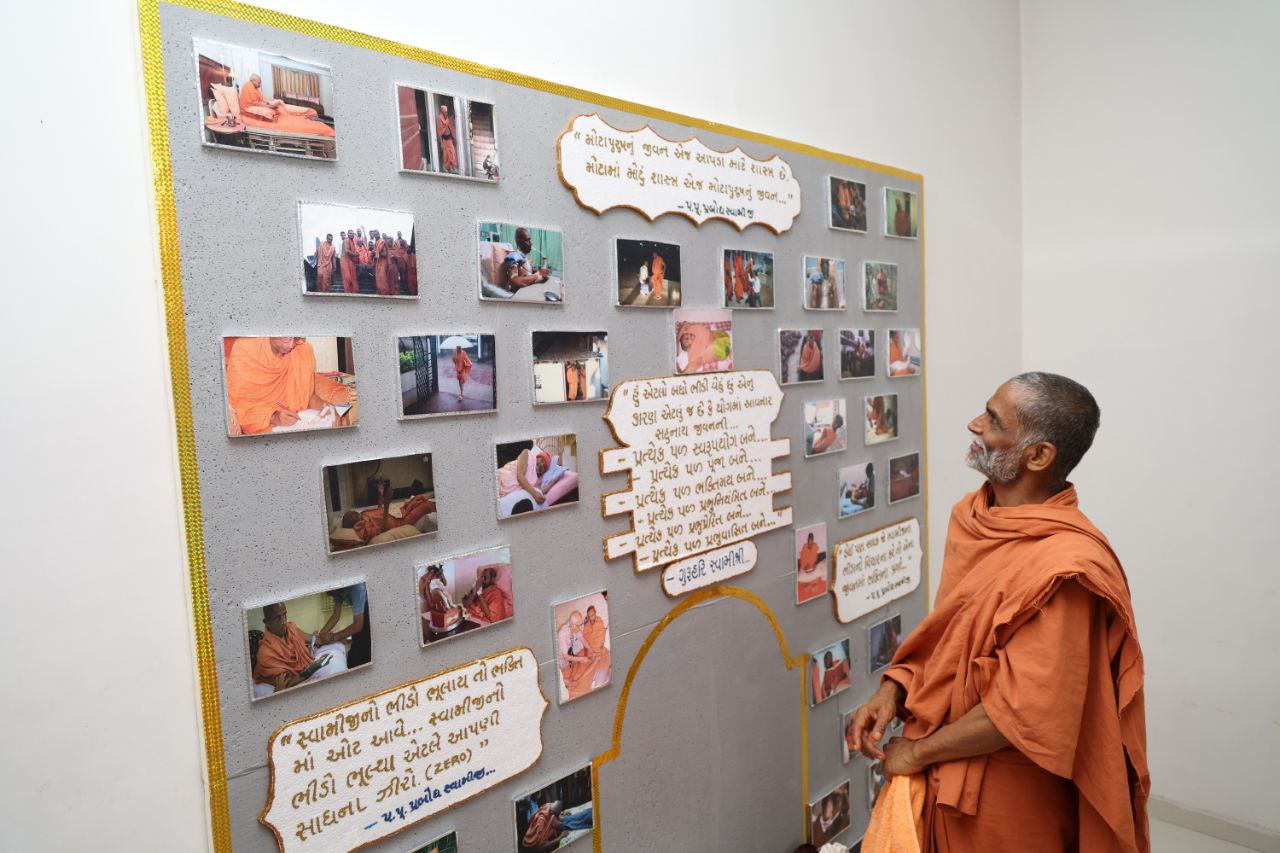 “ મોટાપુરુષનું જીવન એજ આપણા માટે શાસ્ત્ર છે.
મોટામાં મોટું શાસ્ત્ર એજ મોટાપુરુષનું જીવન...”
– પ.પૂ. પ્રબોધસ્વામીજી
“ હું એટલો બધો ભીડો વેઠું છું એનું
કારણ એટલું જ છે કે યોગમાં આવનાર
સહુનાય જીવનની...
– પ્રત્યેક પળ સ્વરૂપયોગ બને...
– પ્રત્યેક પળ પૂજા બને...
– પ્રત્યેક પળ ભક્તિમય બને...
– પ્રત્યેક પળ પ્રભુનિયંત્રિત બને..
– પ્રત્યેક પળ પ્રભુપ્રેરિત બને...
– પ્રત્યેક પળ પ્રભુવાસિત બને...”
– ગુરુહરિ સ્વામીશ્રી..
જીવનમાં
“ સ્વામીજીનો ભીડો ભૂલાય તો ભક્તિ
માં ઓટ આવે... સ્વામીજીનો
ભીડો ભૂલ્યા એટલે આપણી
સાધના ઝીરો. (ZERO) ”
– પ.પૂ. પ્રબોધ સ્વામીજી...